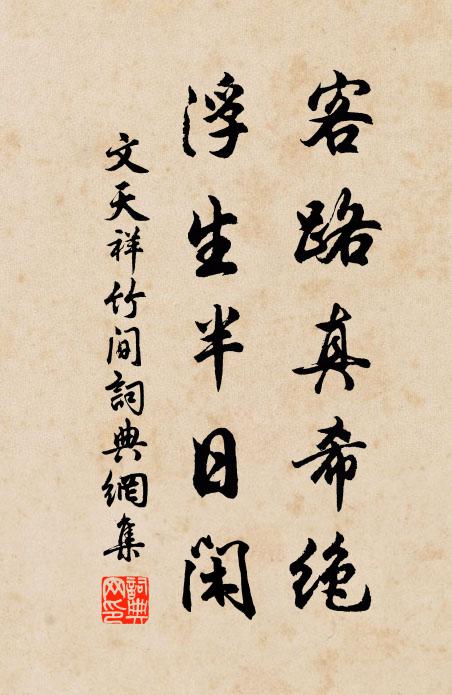 客路真希绝
浮生半日闲
文天祥竹间詞典網集
詞典
网印